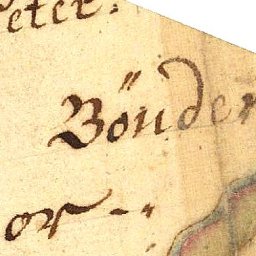 eter.
Bönder
or